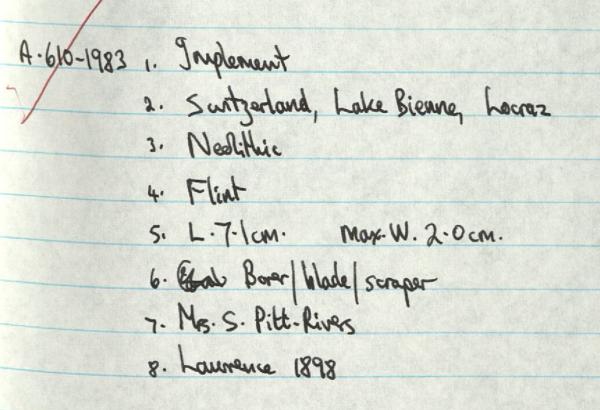 A.610-1983 1. Implement
2. Switzerland, Lake Bienne, Locraz
3. Neolithic
4. Flint
5. L. 7.1cm. Max. W. 2.0cm.
6. Borer/blade/scraper
7. Mrs. S. Pitt-Rivers
8. Lawrence 1898